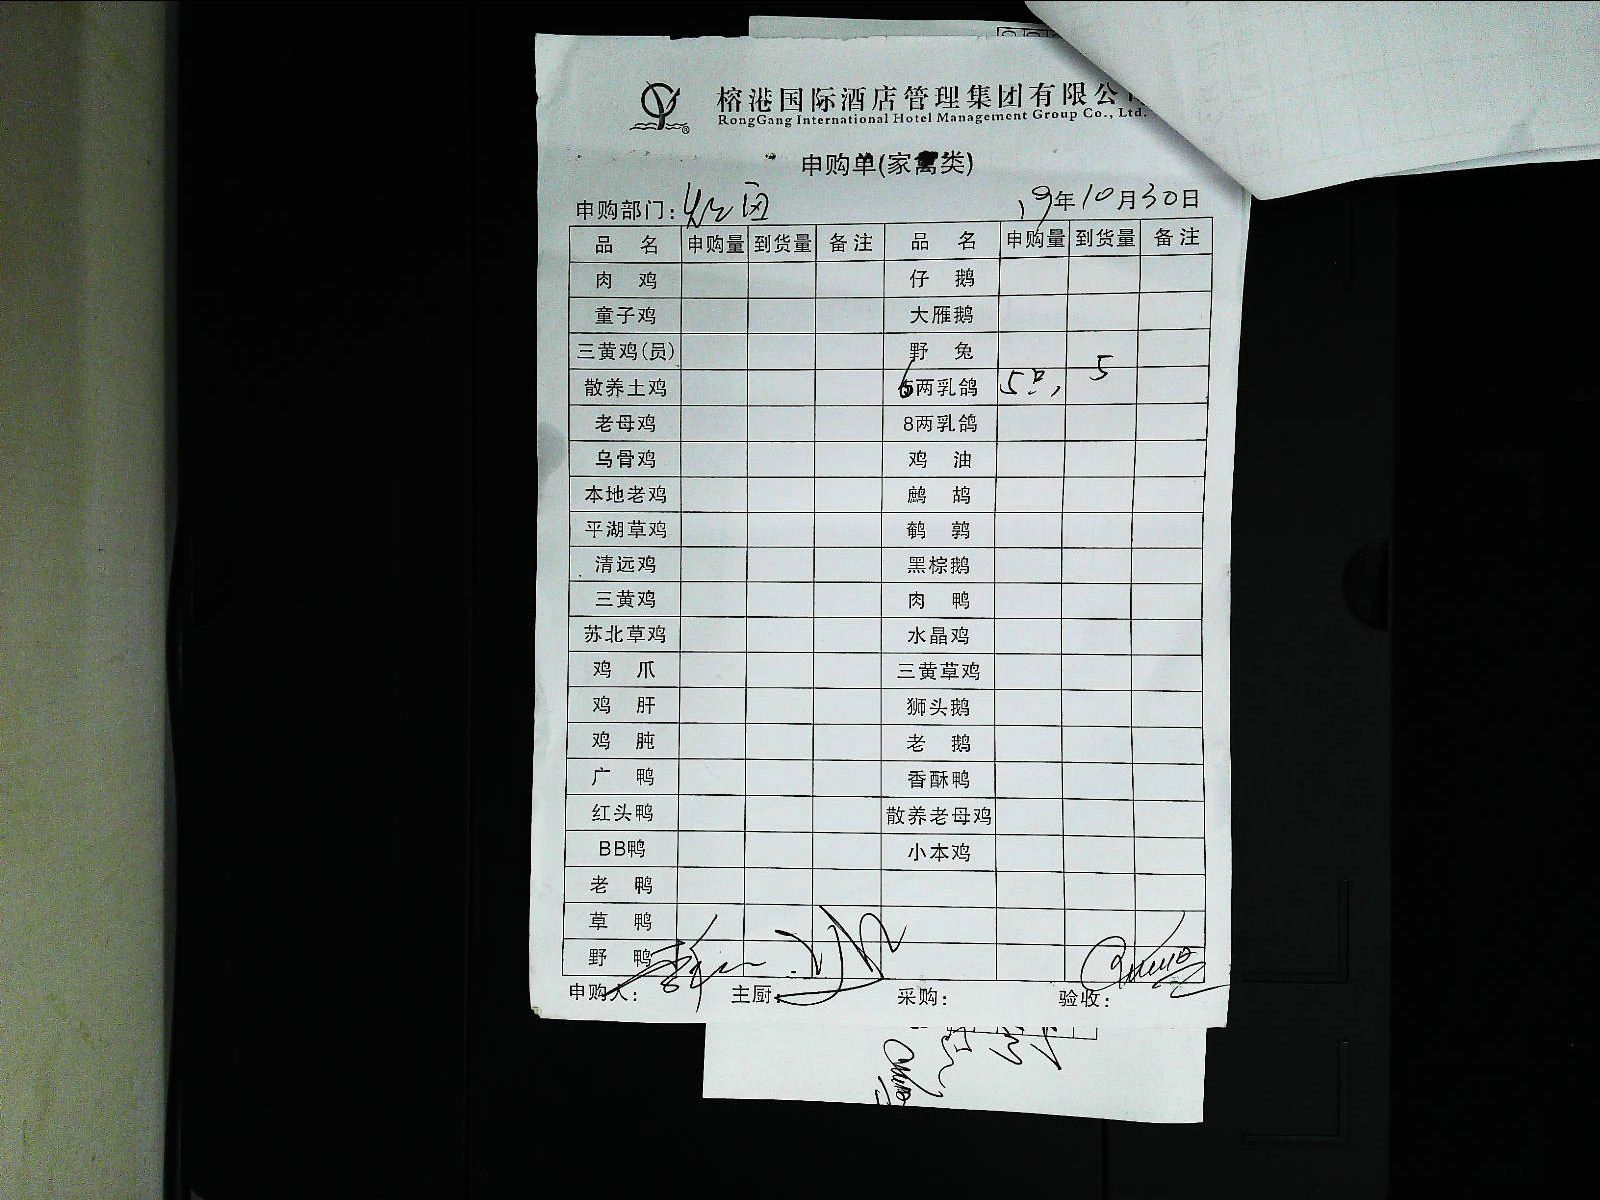 榕港国际酒店管理集团有限公
RongGang International Hotel Management Group Co., Ltd.
申购单(家禽类)
申购部门: 19年10月30日
品 名 申购量 到货量 备注 品 名 申购量 到货量 备注
肉 鸡 仔 鹅
童子鸡 大雁鹅
三黄鸡(员) 野 兔
散养土鸡 6两乳鸽 5只, 5
老母鸡 8两乳鸽
乌骨鸡 鸡 油
本地老鸡 鹧 鸪
平湖草鸡 鹌 鹑
清远鸡 黑棕鹅
三黄鸡 肉 鸭
苏北草鸡 水晶鸡
鸡 爪 三黄草鸡
鸡 肝 狮头鹅
鸡 肫 老 鹅
广 鸭 香酥鸭
红头鸭 散养老母鸡
BB鸭 小本鸡
老 鸭
草 鸭
野 鸭
申购人: 主厨: 采购: 验收: